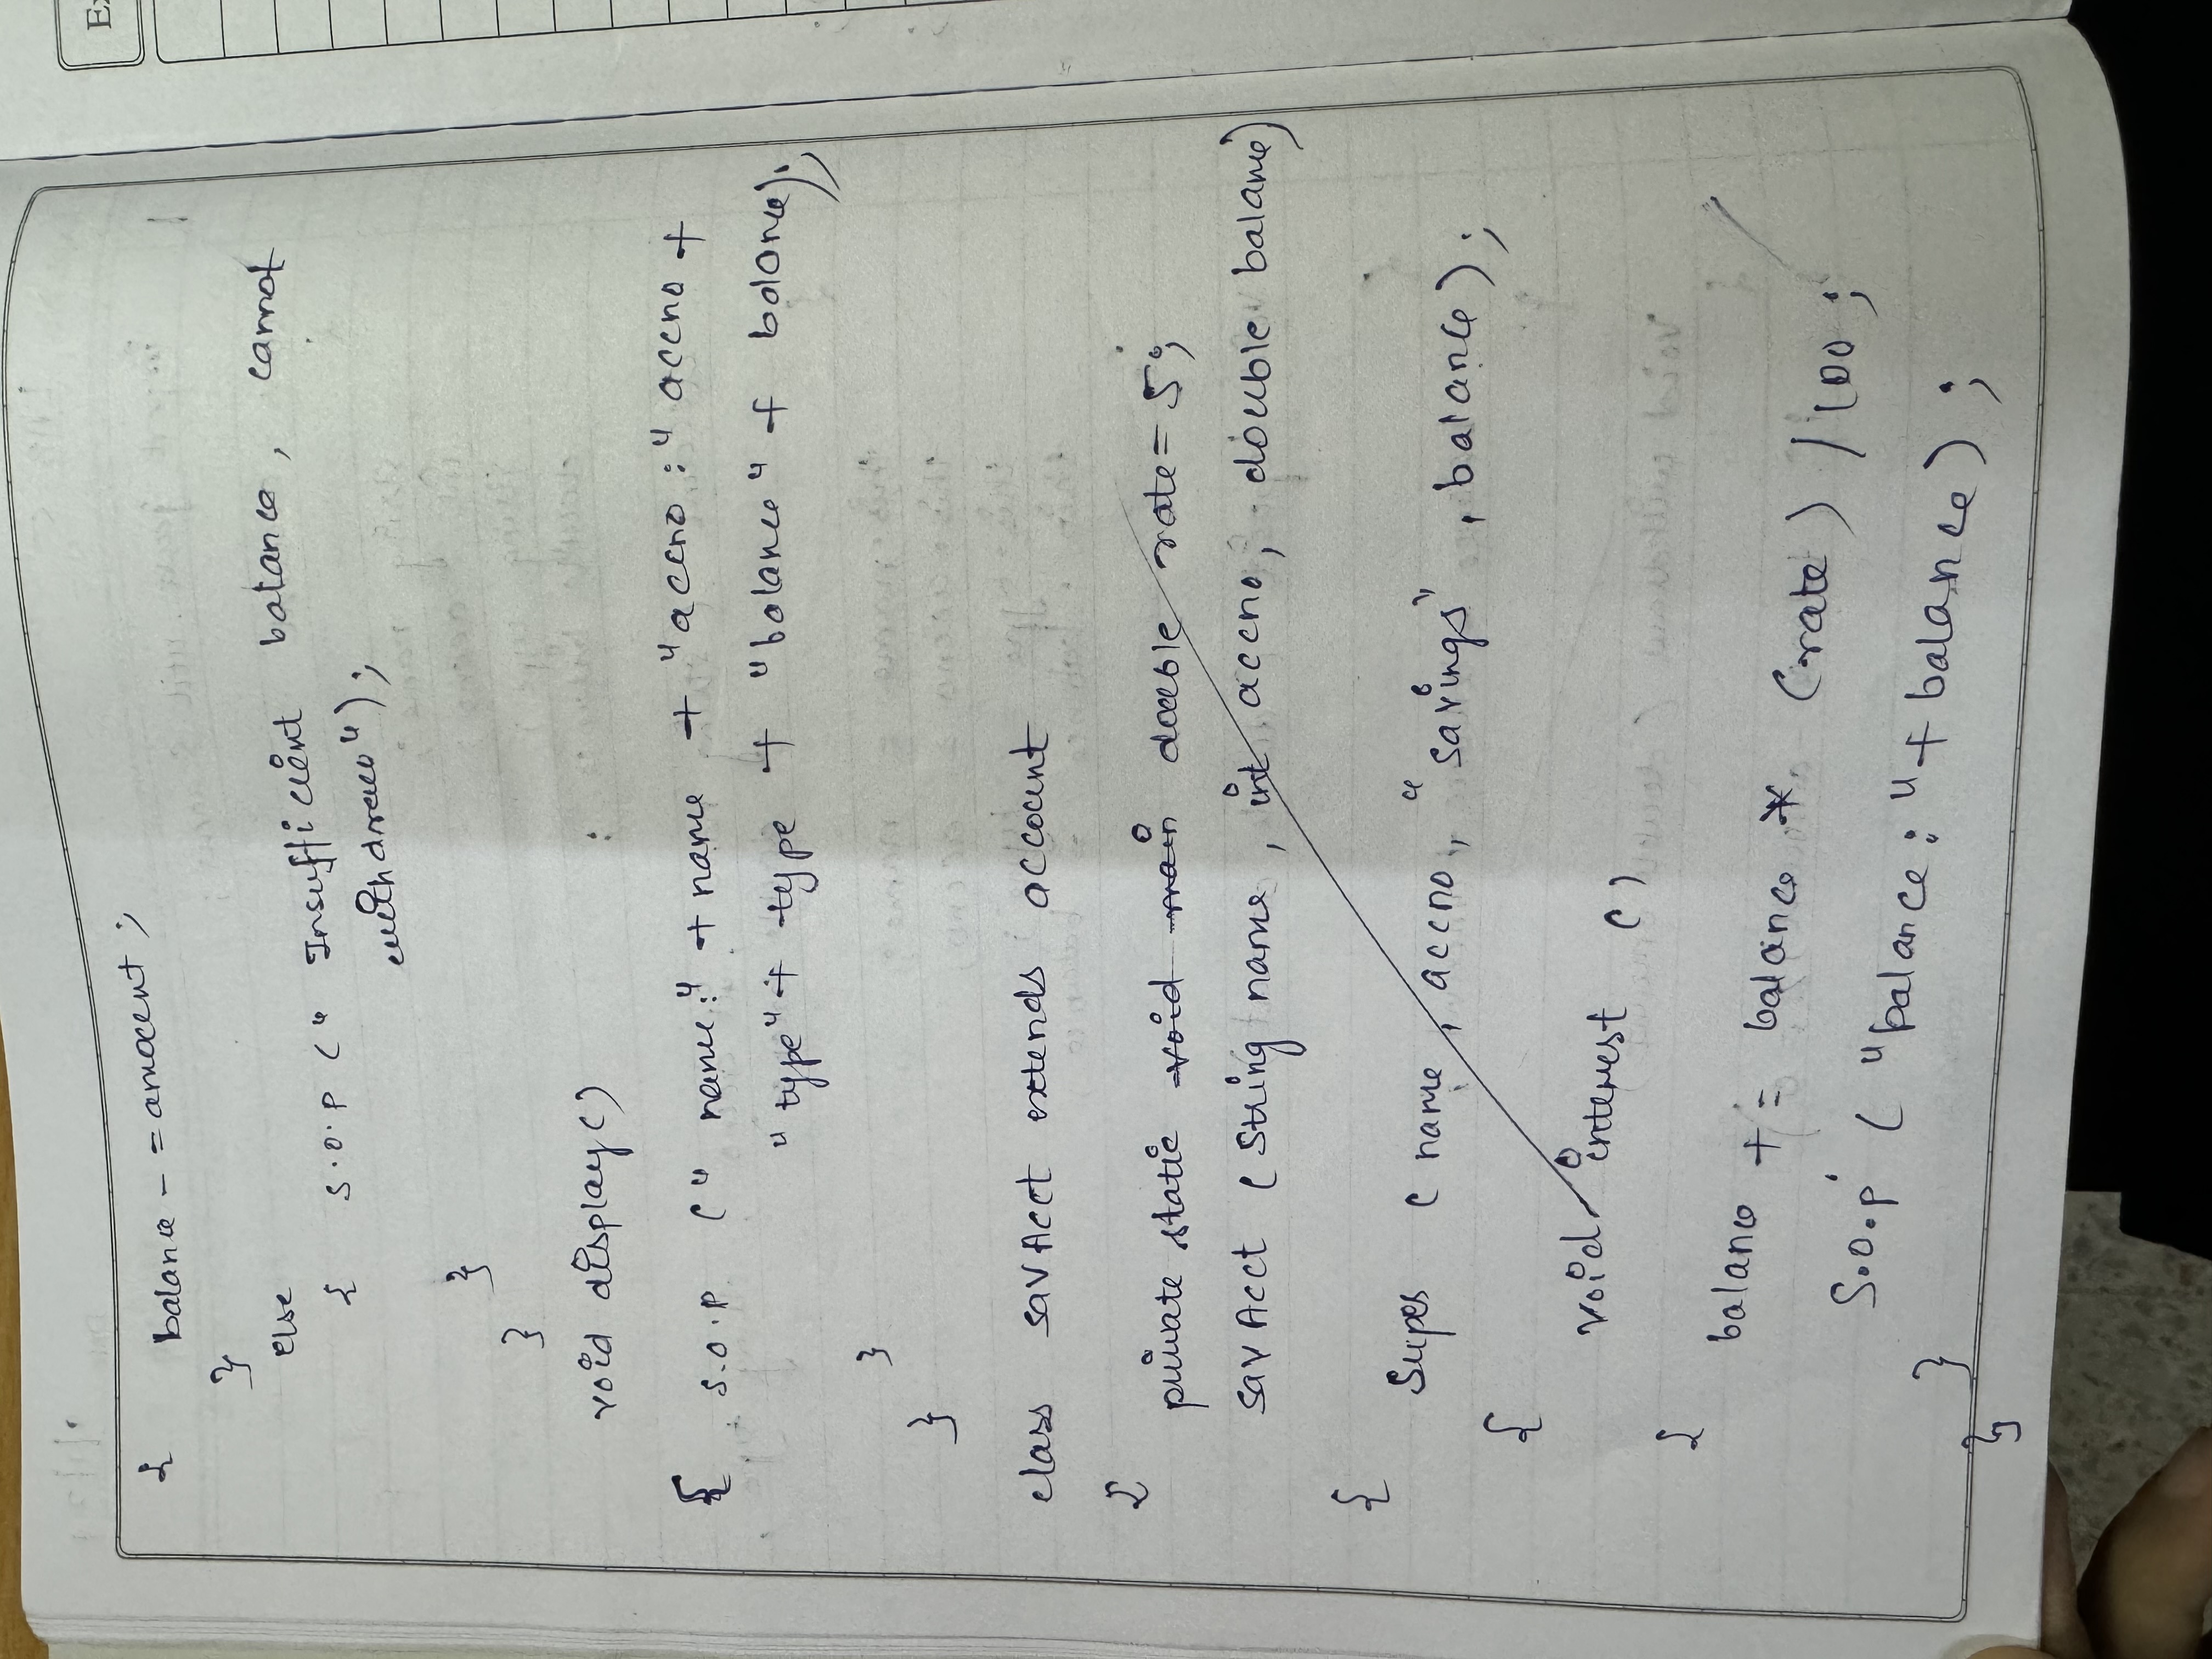 { balance - = amount ;
}
else
{ S.O.P (" Insufficient balance, cannot
withdraw");
}
}
void display()
{ S.O.P (" name:" + name + "accno :" accno +
"type" + type + "balance" + balance);
}
}
class savAcct extends account
{
private static void main double rate = 5;
savAcct (String name, int accno, double balance)
{
Super (name, accno, "savings", balance);
{
void interest ()
{
balance += balance * (rate) / 100;
S.O.P ("balance:" + balance);
}
}
Ex